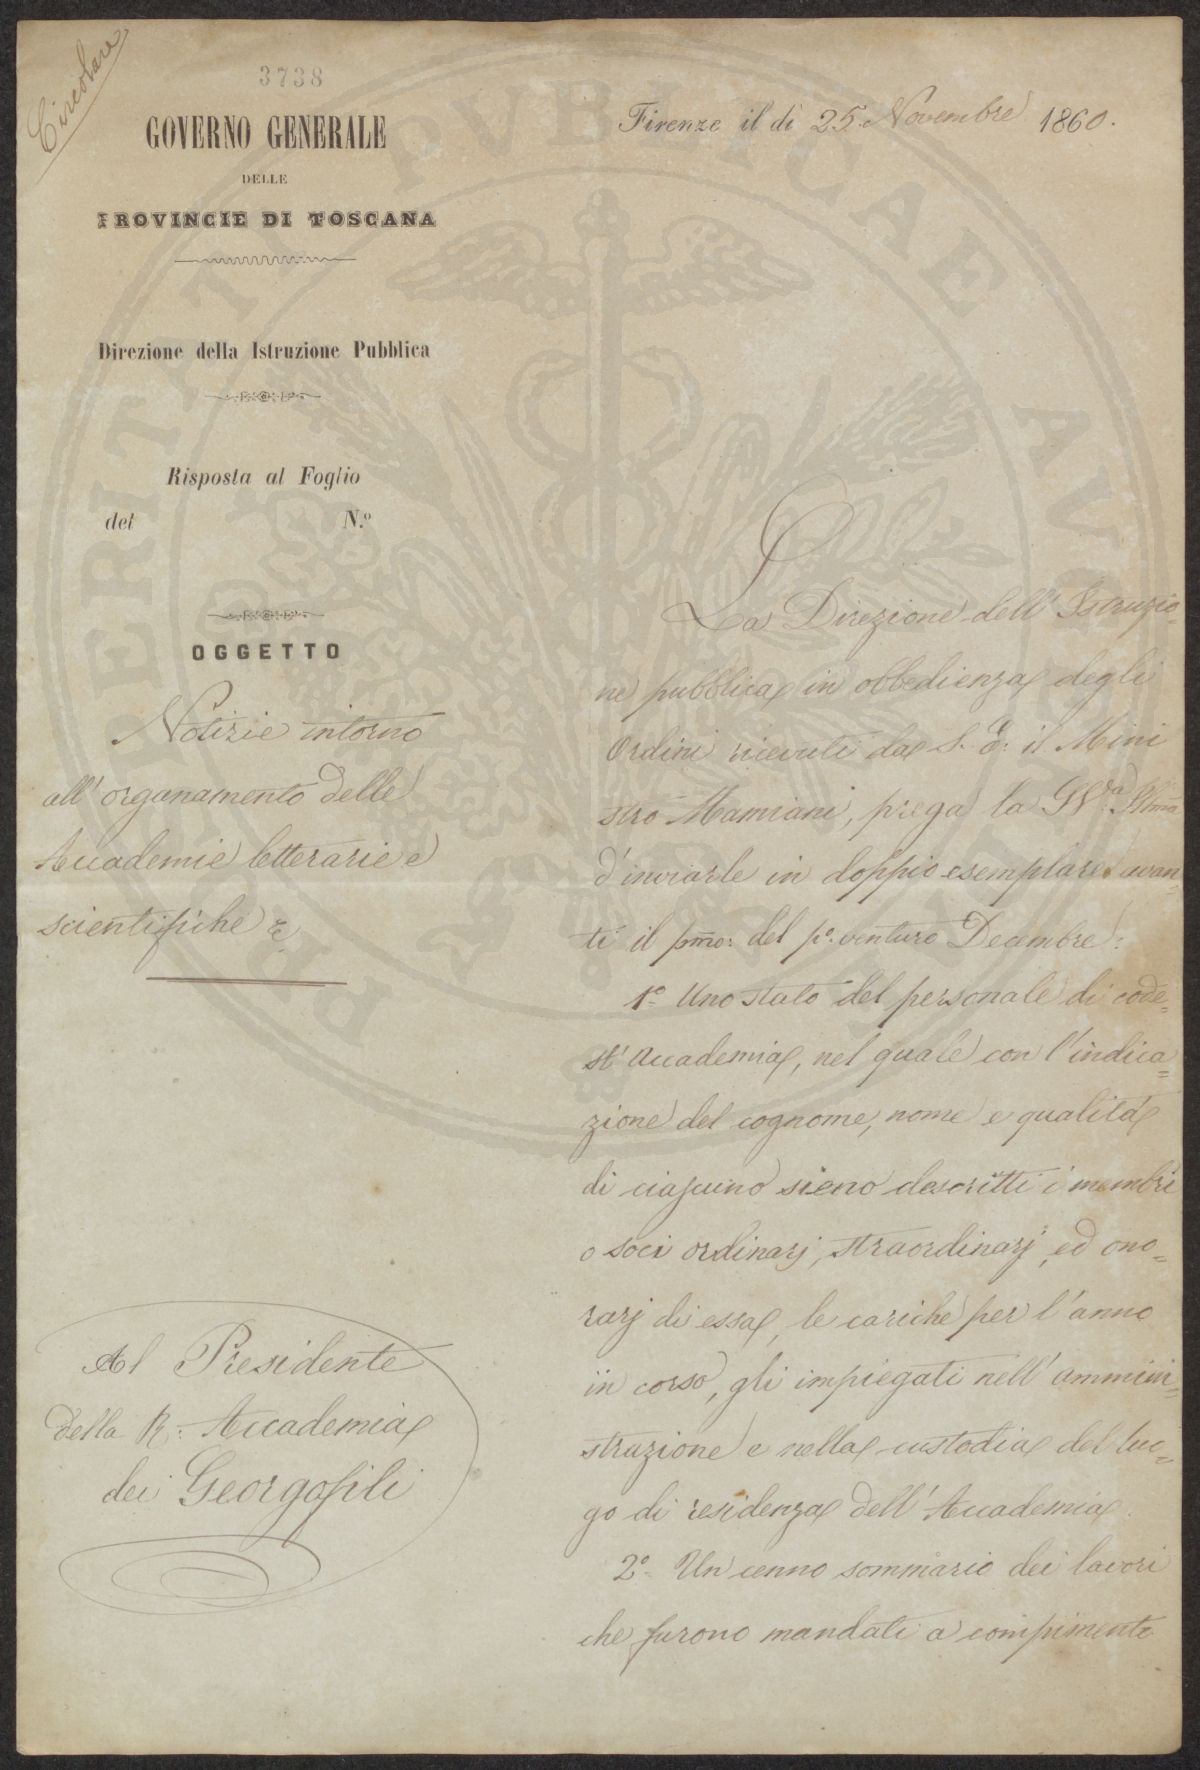 Circolare
3738
GOVERNO GENERALE
DELLE
PROVINCIE DI TOSCANA
Direzione della Istruzione Pubblica
Risposta al Foglio
del N.º
OGGETTO
Notizie intorno
all'organamento delle
Accademie letterarie e
scientifiche &.
Al Presidente
della R. Accademia
dei Georgofili
Firenze il dì 25 Novembre 1860.
La Direzione dell'Istruzio-
ne pubblica in obbedienza degli
Ordini ricevuti da S. E. il Mini
stro Mamiani, prega la S. V.ª Illma
d'inviarle in doppio esemplare avan-
ti il pmo: del po. venturo Decembre:
1º Uno stato del personale di code-
st'Accademia, nel quale con l'indica-
zione del cognome, nome e qualità
di ciascuno sieno descritti i membri
o soci ordinarj, straordinarj, ed ono-
rarj di essa, le cariche per l'anno
in corso, gli impiegati nell'ammini-
strazione e nella custodia del luo-
go di residenza dell'Accademia.
2º Un cenno sommario dei lavori
che furono mandati a compimento
PROSPERITATI PVBLICAE AVGENDAE